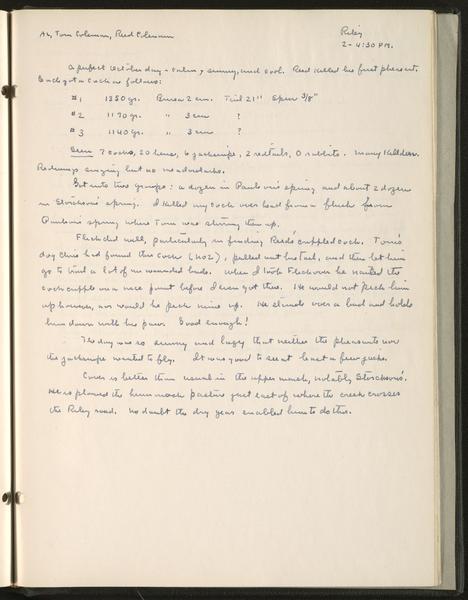 AL, Tom Coleman, Reed Coleman
Riley
2-4:30 PM.
A perfect October day - calm, sunny, and cool. Reed killed his first pheasant.
Each got a cock as follows:
#1 1350 gr. Bursa 2 cm. Tail 21" Spur 3/8"
#2 1170 gr. " 3 cm ?
#3 1140 gr. " 3 cm ?
Seen 7 cocks, 20 hens, 6 jacksnipe, 2 redtails, 0 rabbits. Many killdeer.
Redwings singing but no meadowlarks.
Got into two groups: a dozen in Paulson's spring, and about 2 dozen
in Storkson's spring. I killed my cock over lead from a flush from
Paulson's spring where Tom was stirring them up.
Flick did well, particularly in finding Reed's crippled cock. Tom's
dog Chris had found this cock (no2), pulled out his tail, and then let him
go to find a lot of no wounded birds. When I took Flick over he nailed the
cock cripple on a nice point before I even got there. He would not pick him
up however, nor would he pick mine up. He stands over a bird and holds
him down with his paw. Good enough!
The day was so sunny and lazy that neither the pheasants nor
the jacksnipe wanted to fly. It was good to see at least a few jacks.
Cover is better than usual in the upper marsh, notably Storkson's.
He is plowed the hemp marsh pasture just east of where the creek crosses
the Riley road. No doubt the dry year enabled him to do this.